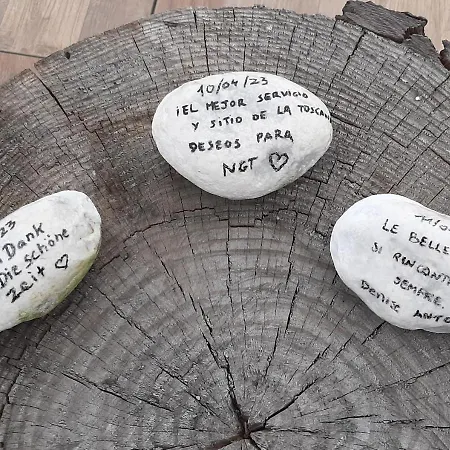 10/04/23
¡EL MEJOR SERVICIO
Y SITIO DE LA TOSCANA
DESEOS PARA
NGT ♡
23
Dank
Die schöne
Zeit ♡
LE BELLE
SI RINCONTR
SEMPRE.
DENISE ANTO